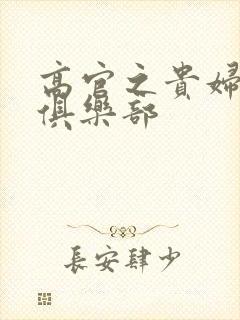 高官之貴婦
俱樂部
長安肆少